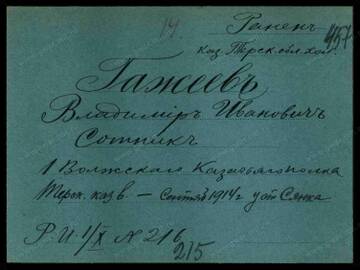 14.
Раненъ
457
каз. Терск. обл.
Гажеевъ
Владиміръ Ивановичъ
Сотникъ
1 Волжскаго Казачьяго полка
Терск. каз. в. — Сентяб 1914 г у от Сянка
Р. И. 1/X № 216
215